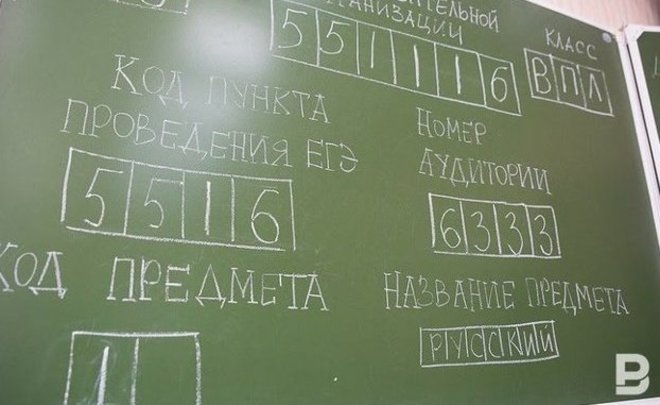 ОРГАНИЗАЦИИ
551116
КЛАСС
ВПЛ
КОД ПУНКТА
ПРОВЕДЕНИЯ ЕГЭ
5516
НОМЕР
АУДИТОРИИ
6333
КОД ПРЕДМЕТА
1
НАЗВАНИЕ ПРЕДМЕТА
РУССКИЙ